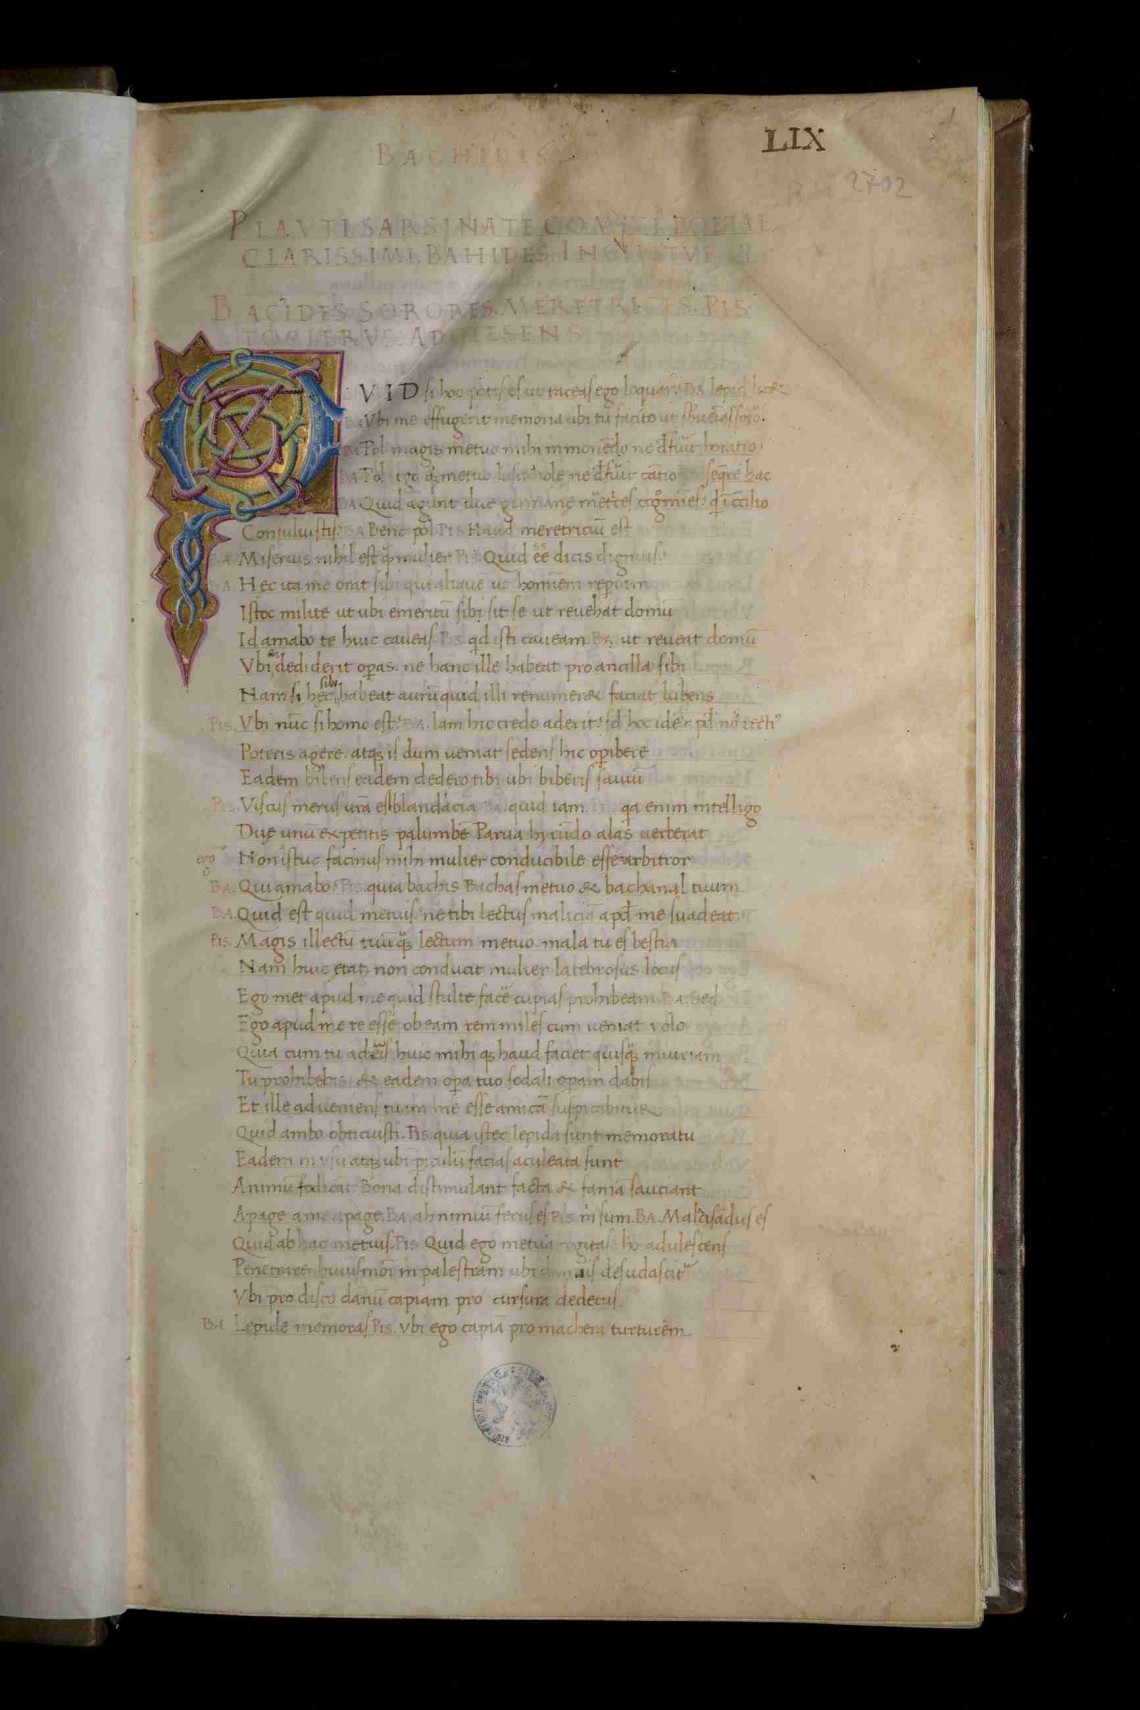 LIX
BACHIDIS
2702
PLAVTI SARSINATE COMICI POETAE
CLARISSIMI. BAHIDES. INCIPIT
BACIDES SORORES. MERETRICES. PIS
TOCLERVS. ADOLESENS
QVID si hoc potis est ut taceas ego loquar. BA lepide
BA. Vbi me effugerit memoria ubi tū facito ut
BA Pol magis metuo mihi in monēdo ne
BA Pol metuo ne seqre hac
BA Quid agunt due germane
Consuluistis. BA Bene pol. Pis Haud meretriciū est
BA Miserius nihil est q̄ mulier Pis Quid eē dicis dignius.
BA Hec ita me orat sibi qui aliquē ut hominem repiam
Istoc milite ut ubi emeritū sibi sit se ut reuehat domū
Id amabo te huic caueas Pis qd isti caueam Ba ut reueat domū
Vbi dediderit opas. ne hanc ille habeat pro ancilla sibi
Nam si hec sibi habeat aurū quid illi renumer& faciat lubens
Pis. Vbi nūc si homo est. BA. Iam hic credo aderit.
Poteris agere. atq; is dum ueniat sedens hic opibere
Eadem bibens eadem dedero tibi ubi biberis sauiū
Pis Viscus merus urā est blandacia BA quid iam. Pis qa enim intelligo
Due unū expetitis palumbē Parua hyrūdo alas uerberat
ego Non istuc facinus mihi mulier conducibile esse arbitror
BA. Qui amabo. Pis. quia bachis Bachas metuo & bachanal tuum
BA. Quid est quid metuis. ne tibi lectus maliciā apd me suadeat.
Pis. Magis illectū tuū q̄ lectum metuo. mala tu es bestia
Nam huic etati non conducit mulier latebrosus locus
Ego met apud me quid stulte facē cupias prohibeam. BA. Sed
Ego apud me te esse, ob eam rem miles cum ueniat uolo
Quia cum tu aderis huic mihi q; haud faciet quisq̄ iniuriam
Tu prohibebis. & eadem opa tuo sodali opam dabis
Et ille adueniens tuam me esse amicā suspicabitur
Quid ambo obticuisti. Pis. quia istec lepida sunt memoratu
Eadem in usu atq; ubi piculū facias aculeata sunt
Animū fodicāt Bona distimulant facta & famā sauciant
Apage a me. apage. BA. ah nimiū ferus es Pis mi sum. BA.
Quid ab hac metuis. Pis Quid ego metuā rogitas adulescens
Penetrare huiusmoī in palestram ubi desudascit
Vbi pro disco danū capiam pro cursura dedecus.
BA Lepide memoras Pis. Vbi ego capiā pro machera turturem